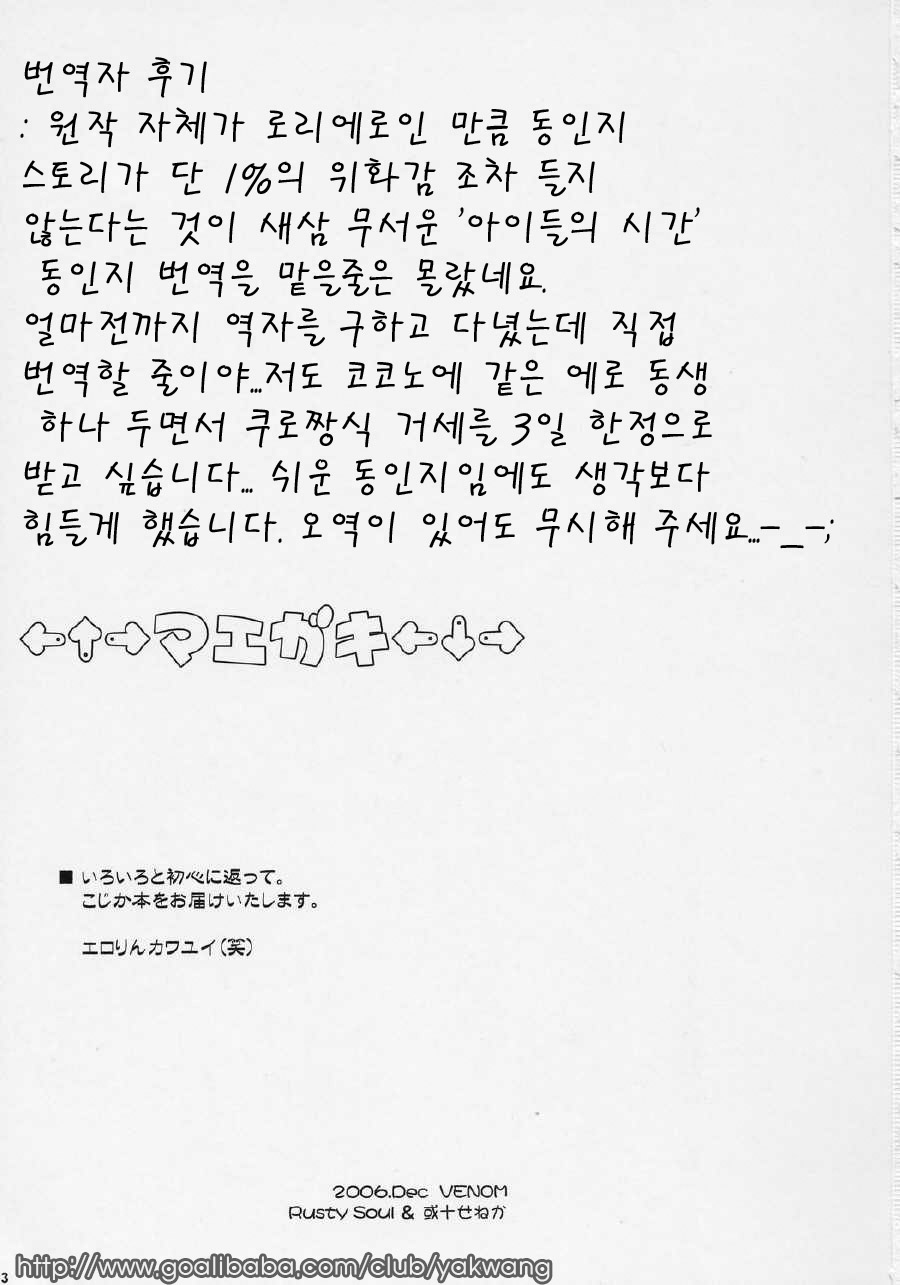 번역자 후기
: 원작 자체가 로리에로인 만큼 동인지
스토리가 단 1%의 위화감 조차 들지
않는다는 것이 새삼 무서운 '아이들의 시간'
동인지 번역을 맡을줄은 몰랐네요.
얼마전까지 역자를 구하고 다녔는데 직접
번역할 줄이야...저도 코코노에 같은 에로 동생
하나 두면서 쿠로짱식 거세를 3일 한정으로
받고 싶습니다... 쉬운 동인지임에도 생각보다
힘들게 했습니다. 오역이 있어도 무시해 주세요...-_-;
←↑→マエガキ←↓→
■ いろいろと初心に返って。
こじか本をお届けいたします。
エロりんカワユイ(笑)
2006.Dec VENOM
Rusty Soul & 或十せねか
http://www.goalibaba.com/club/yakwang
3